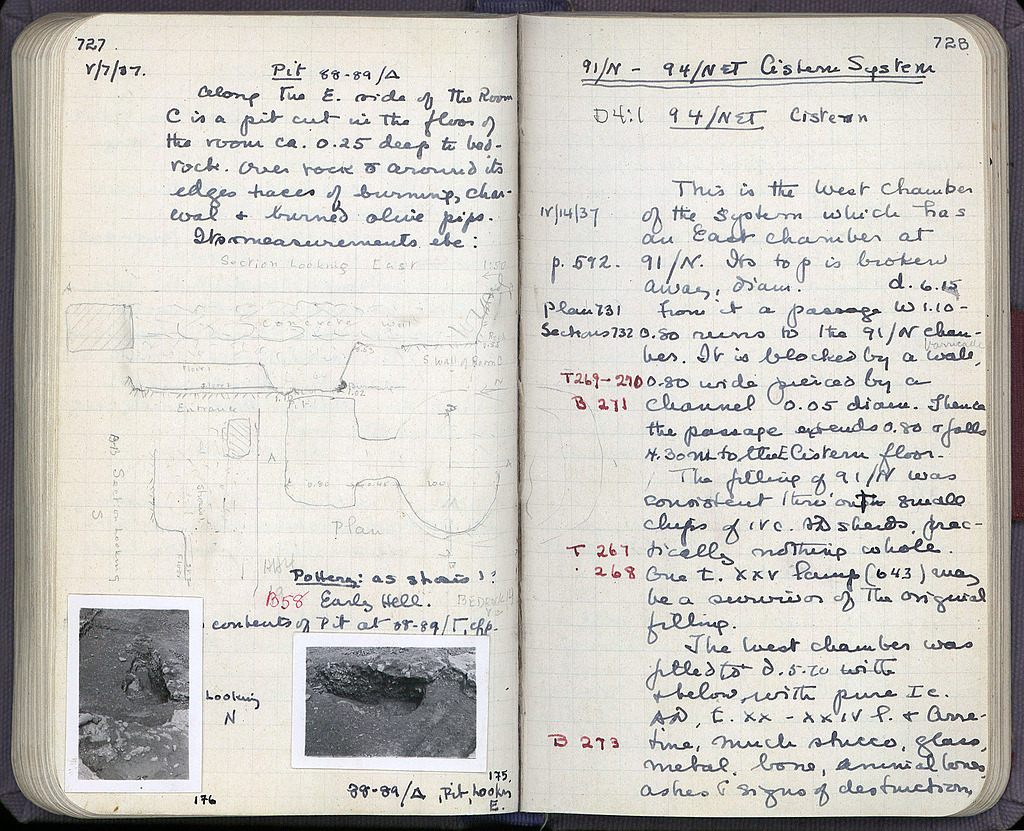 727
V/7/37.
Pit 88-89/Δ
Along the E. side of the Room
C is a pit cut in the floor of
the room ca. 0.25 deep to bed-
rock. Over rock & around its
edges traces of burning, char-
coal + burned olive pips.
Its measurements etc:
Section Looking East
1:50
A
Concrete Wall
S. Wall of Room D
1.02
Entrance
A
A
0.80
Plan
B
Section Looking
S
Pottery: as shaws !:
B58 Early Hell.
BEDROCK
contents of Pit at 88-89/Γ, cfp.
Looking
N
176
175
88-89/Δ, Pit, Lookin
E.
728
91/N - 94/NET Cistern System
D4:1 94/NET Cistern
This is the West Chamber
IV/14/37 of the System which has
an East chamber at
p. 592. 91/N. Its top is broken
away, diam. d. 6.15
Plan 731 From it a passage W 1.10-
Sections 732 0.80 runs to the 91/N cham-
barricade
ber. It is blocked by a wall,
T269-270 0.80 wide pierced by a
B 271 channel 0.05 diam. Thence
the passage extends 0.80 & falls
4.30 m to the E Cistern floor.
The filling of 91/N was
consistent thruout small
chips of IVc. AD sherds, prac-
T 267 tically nothing whole.
268 One t. XXV lamp (643) may
be a survivor of the original
filling.
The west chamber was
filled to d. 5.70 with
+ below, with pure Ic.
AD, t. XX - XXIV l. + Arre-
B 273 tine, much stucco, glass,
metal, bone, animal bones
ashes & signs of destruction